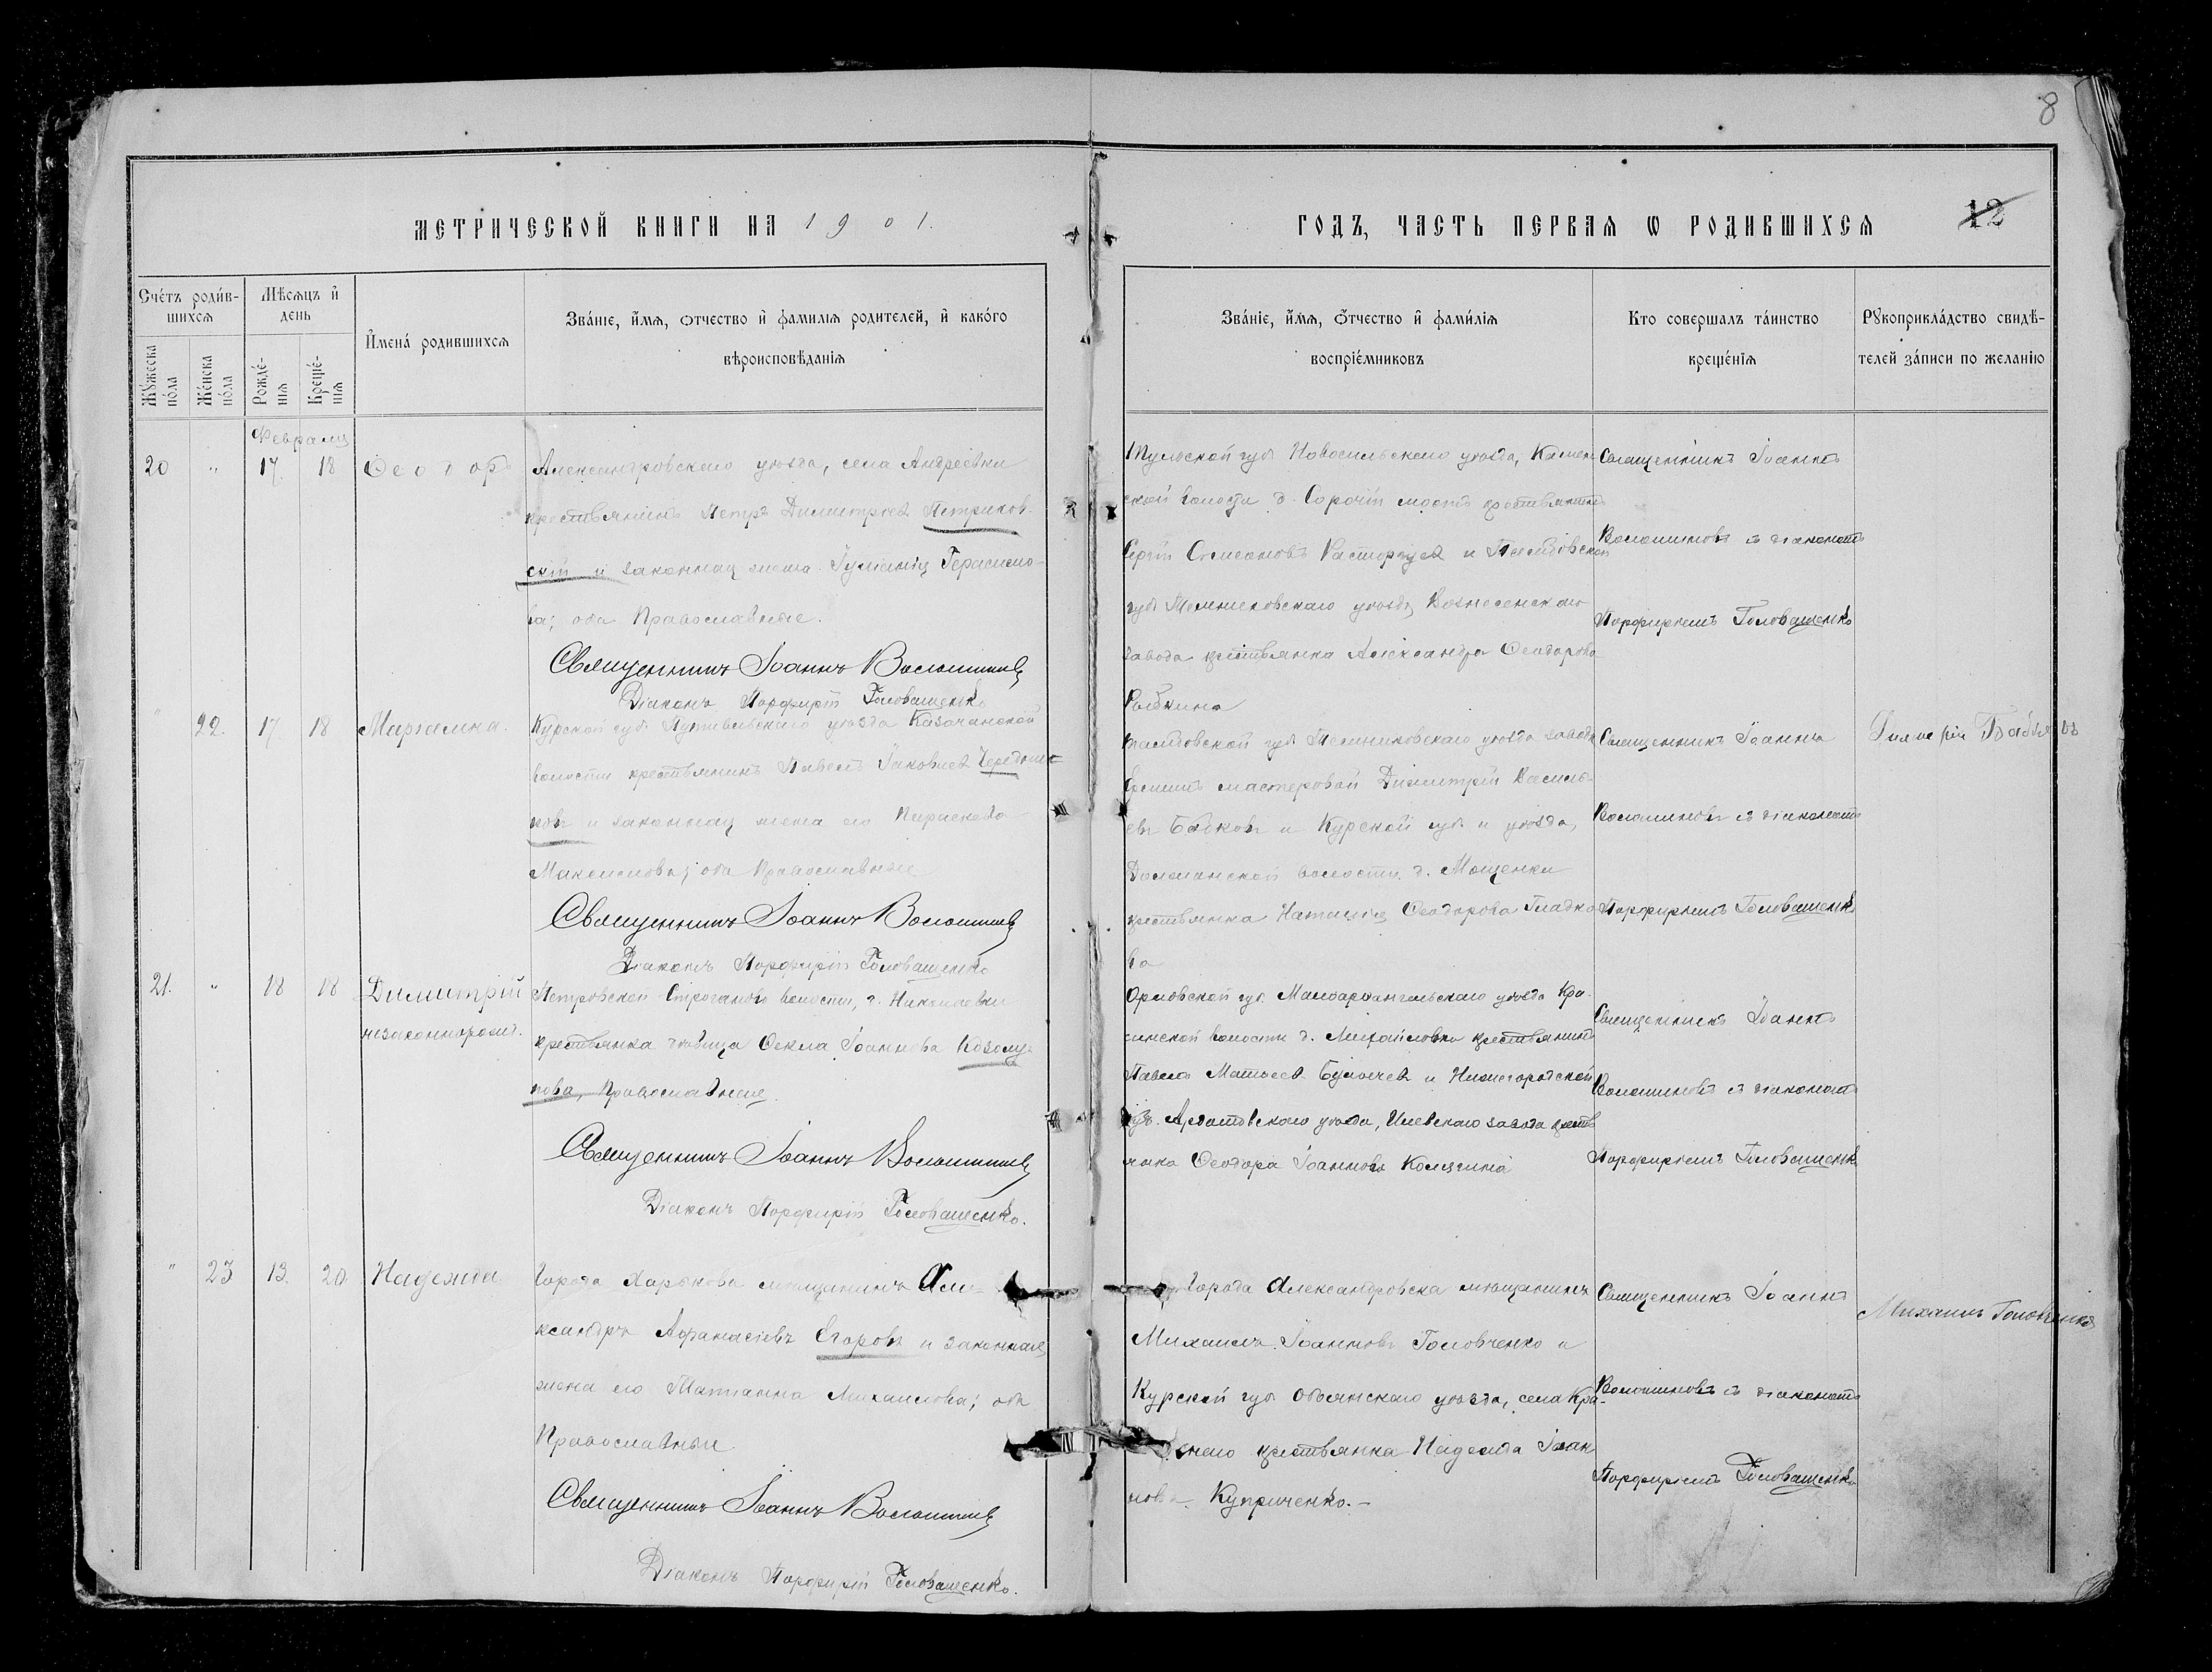 8
МЕТРИЧЕСКОЙ КНИГИ НА 1901.
ГОДЪ, ЧАСТЬ ПЕРВАЯ Ѡ РОДИВШИХСЯ
12
Счетъ родив-
шихся
Мѣсяцъ и
день
Имена родившихся
Званіе, имя, отчество и фамилія родителей, и какого
вѣроисповѣданія
Мужеска
пола
Женска
пола
Рожде-
нія
Креще-
нія
Званіе, имя, отчество и фамилія
воспріемниковъ
Кто совершалъ таинство
крещенія
Рукоприкладство свидѣ-
телей записи по желанію
Февраля
20 " 17. 18 Ѳеодоръ
Александровскаго уѣзда, села Андреевки
крестьянинъ Петръ Димитріевъ Петриков-
скій и законная жена Іуліанія Герасимо-
ва; оба Православные.
Священникъ Іоаннъ Волошиновъ
Діаконъ Порфирій Головащенко
Тульской губ. Новосильскаго уѣзда, Камен-
ской волости д. Сорочій мостъ крестьянинъ
Сергій Симеоновъ Расторгуевъ и Тамбовской
губ. Темниковскаго уѣзда Вознесенскаго
завода крестьянка Александра Ѳеодорова
Священникъ Іоаннъ
Волошиновъ съ діакономъ
Порфиріемъ Головащенко
" 22. 17. 18 Маріамна.
Курской губ. Путивльскаго уѣзда Казачанской
волости крестьянинъ Павелъ Іаковлевъ Чередни-
ковъ и законная жена его Параскева
Максимова; оба Православные
Священникъ Іоаннъ Волошиновъ
Діаконъ Порфирій Головащенко
Тамбовской губ. Темниковскаго уѣзда завода
мастеровой Димитрій Василь-
евъ Бабковъ и Курской губ. и уѣзда,
волости д. Мощенки
крестьянка Наталія Ѳеодорова Гладко-
ва
Священникъ Іоаннъ
Волошиновъ съ діакономъ
Порфиріемъ Головащенко
21. " 18 18 Димитрій
незаконнорожд.
Петровской волости, д. Николаевки
крестьянка дѣвица Ѳекла Іоаннова Козолу-
пова, Православная.
Священникъ Іоаннъ Волошиновъ
Діаконъ Порфирій Головащенко.
Орловской губ. Малоархангельскаго уѣзда
волости д. Михайловки крестьянинъ
Павелъ и Нижегородской
губ. Ардатовскаго уѣзда, Илевскаго завода крестья
нка Ѳеодора Іоаннова
Священникъ Іоаннъ
Волошиновъ съ діакономъ
Порфиріемъ Головащенко
" 23 13. 20. Надежда
Города Харькова мѣщанинъ Але-
ксандръ Аѳанасіевъ Егоровъ и законная
жена его Татіанна Михаилова; оба
Православные
Священникъ Іоаннъ Волошиновъ
Діаконъ Порфирій Головащенко.
Города Александровска мѣщанинъ
Михаилъ Іоанновъ Головченко и
Курской губ. Обоянскаго уѣзда, села Кра-
снаго крестьянка Надежда Іоан
нова Куприченко. -
Священникъ Іоаннъ
Волошиновъ съ діакономъ
Порфиріемъ Головащенко
Михаилъ Головченко